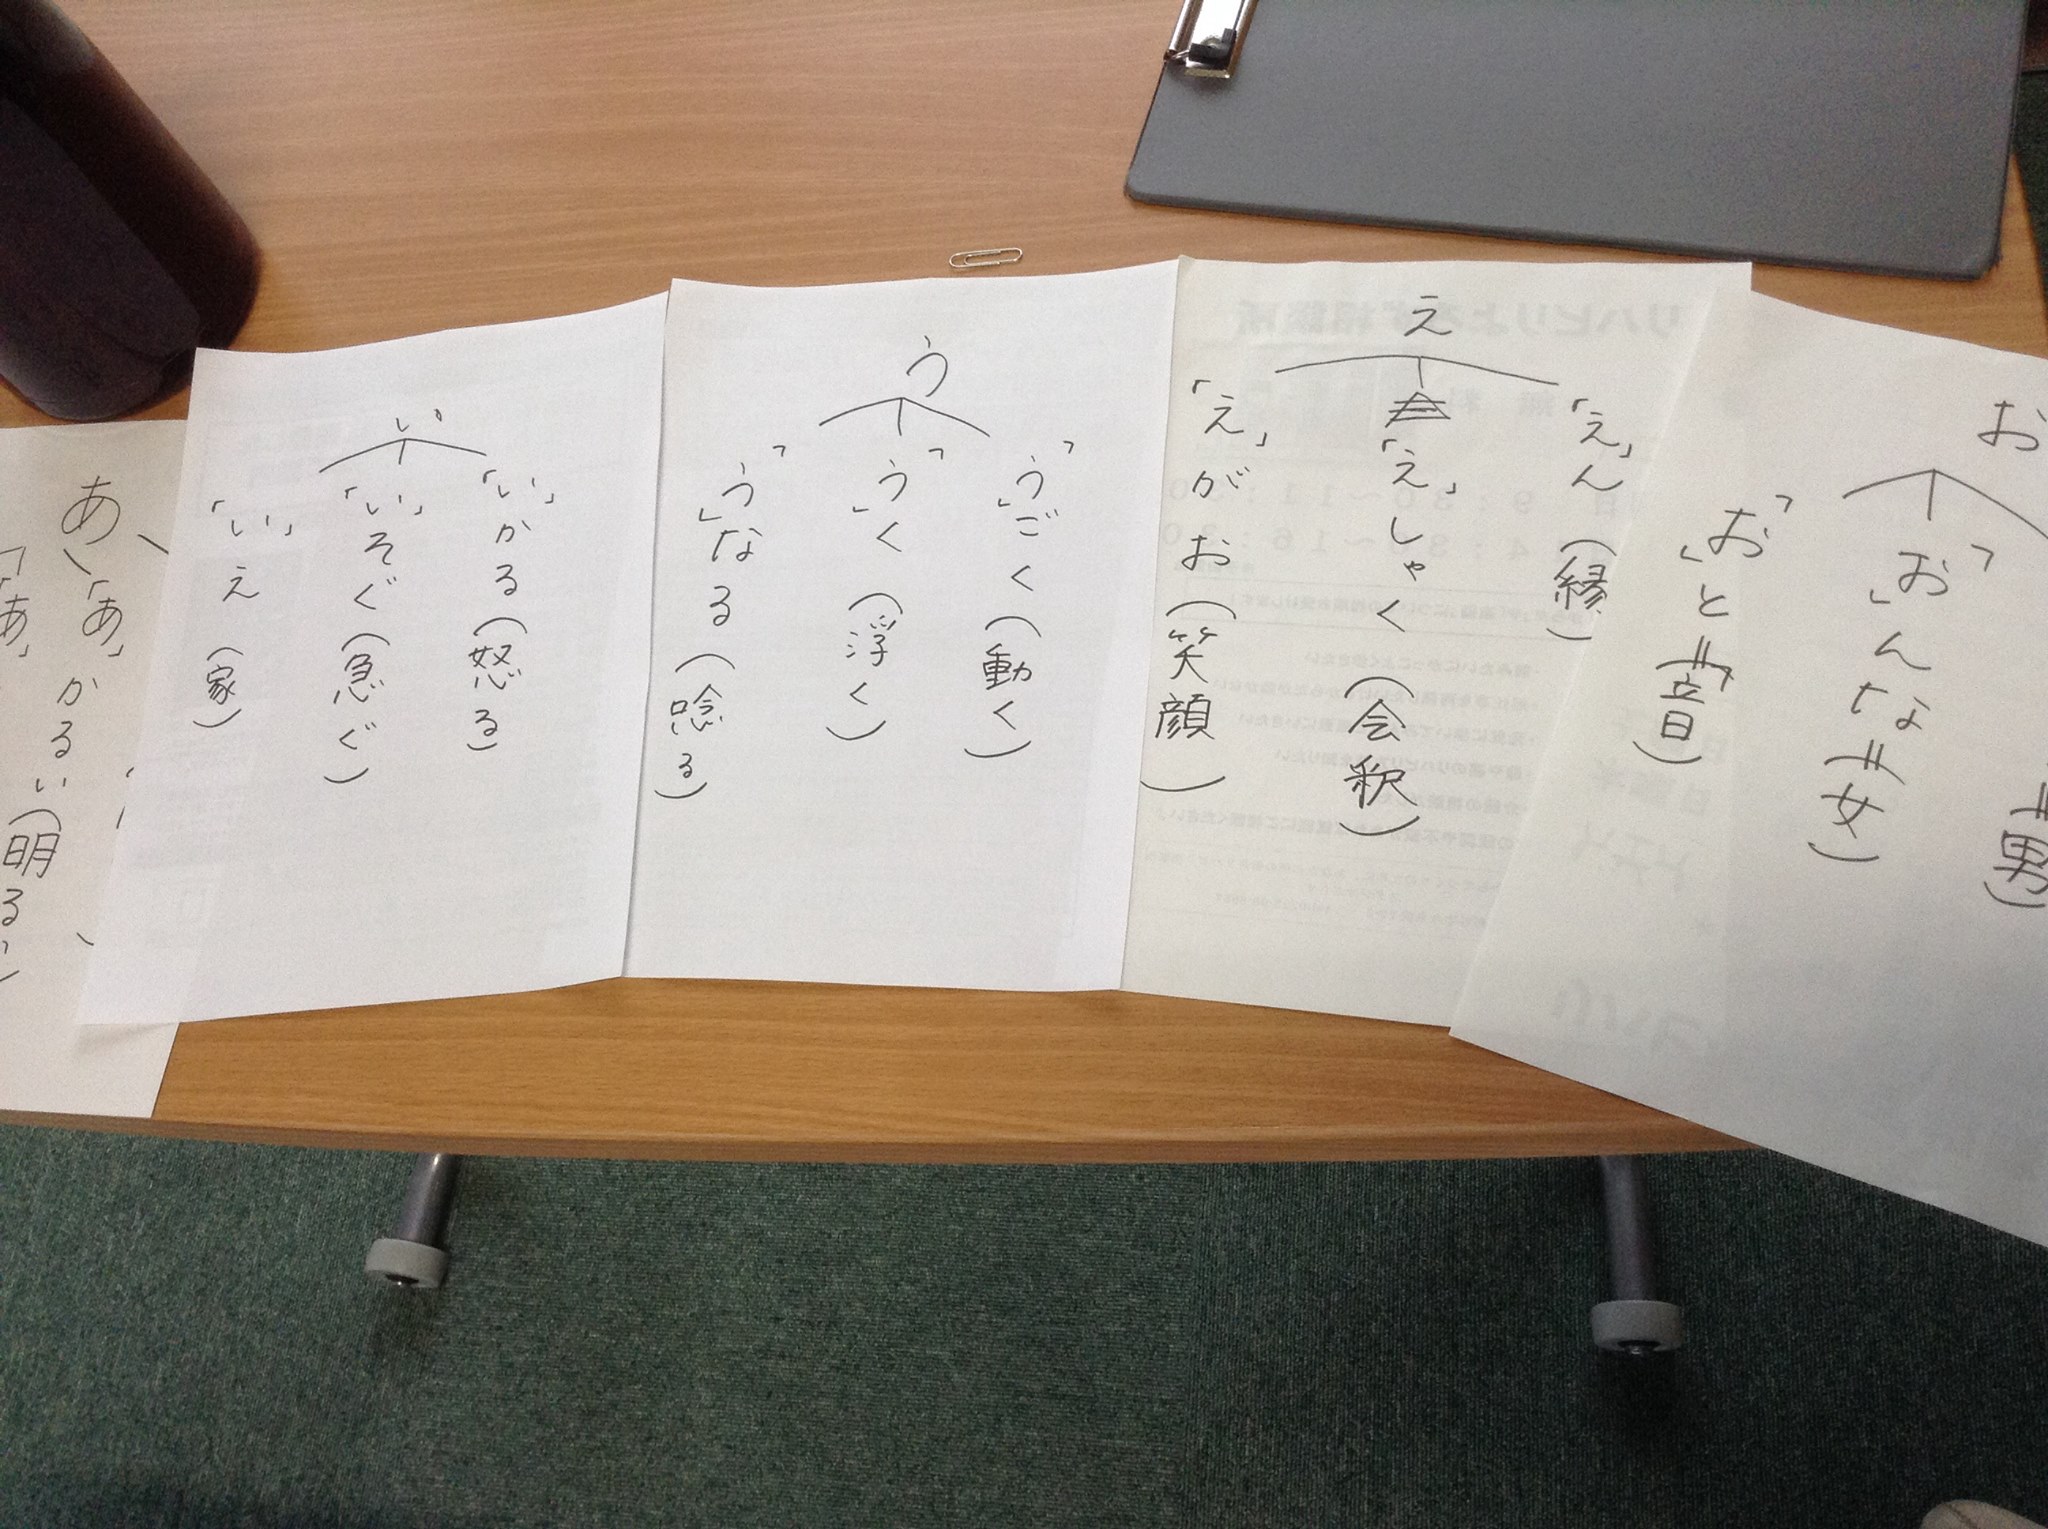 あ
「あ」かるい(明るい)
「あ」
い
「い」かる(怒る)
「い」そぐ(急ぐ)
「い」え(家)
う
「う」ごく(動く)
「う」く(浮く)
「う」なる(唸る)
え
「え」ん(縁)
「え」しゃく(会釈)
「え」がお(笑顔)
お
男)
「お」んな(女)
「お」と(音)
リハビリよろず相談所